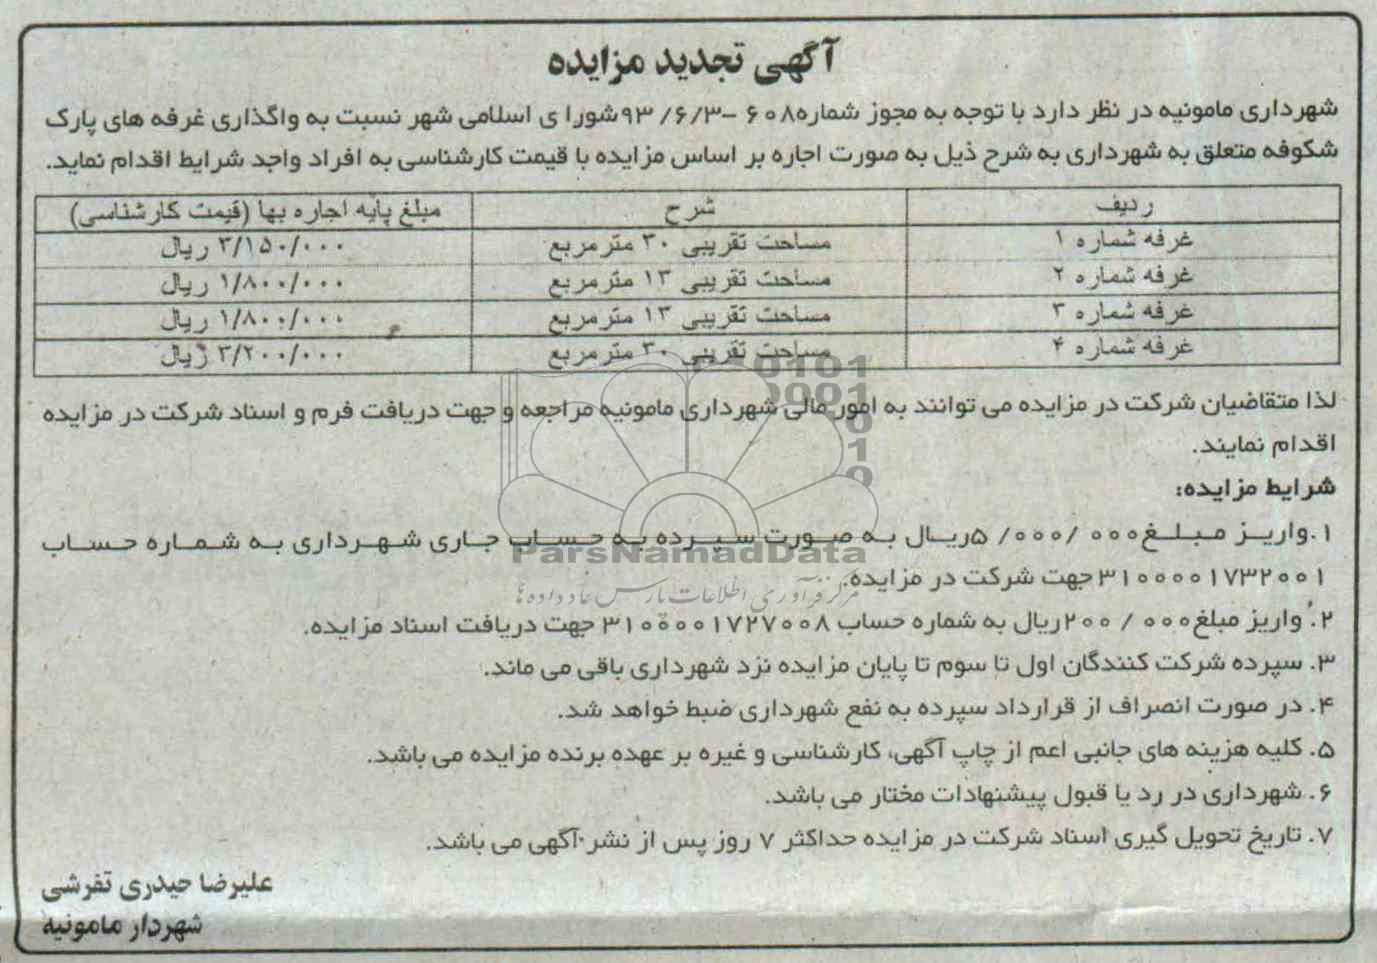 آگهی تجدید مزایده
شهرداری مامونیه در نظر دارد با توجه به مجوز شماره۶۰۸ –۹۳/۶/۳شورا ی اسلامی شهر نسبت به واگذاری غرفه های پارک
شکوفه متعلق به شهرداری به شرح ذیل به صورت اجاره بر اساس مزایده با قیمت کارشناسی به افراد واجد شرایط اقدام نماید.
ردیف شرح مبلغ پایه اجاره بها (قیمت کارشناسی)
غرفه شماره ۱ مساحت تقریبی ۳۰ مترمربع ۳/۱۵۰/۰۰۰ ریال
غرفه شماره ۲ مساحت تقریبی ۱۳ مترمربع ۱/۸۰۰/۰۰۰ ریال
غرفه شماره ۳ مساحت تقریبی ۱۳ مترمربع ۱/۸۰۰/۰۰۰ ریال
غرفه شماره ۴ مساحت تقریبی ۳۰ مترمربع ۳/۲۰۰/۰۰۰ ریال
لذا متقاضیان شرکت در مزایده می توانند به امور مالی شهرداری مامونیه مراجعه و جهت دریافت فرم و اسناد شرکت در مزایده
اقدام نمایند.
شرایط مزایده:
۱.واریز مبلغ۰۰۰ /۰۰۰/ ۵ریال به صورت سپرده به حساب جاری شهرداری به شماره حساب
۳۱۰۰۰۰۱۷۳۲۰۰۱ جهت شرکت در مزایده.
۲. واریز مبلغ۰۰۰ / ۲۰۰ریال به شماره حساب ۳۱۰۰۰۰۱۷۲۷۰۰۸ جهت دریافت اسناد مزایده.
۳. سپرده شرکت کنندگان اول تا سوم تا پایان مزایده نزد شهرداری باقی می ماند.
۴. در صورت انصراف از قرارداد سپرده به نفع شهرداری ضبط خواهد شد.
۵. کلیه هزینه های جانبی اعم از چاپ آگهی، کارشناسی و غیره بر عهده برنده مزایده می باشد.
۶. شهرداری در رد یا قبول پیشنهادات مختار می باشد.
۷. تاریخ تحویل گیری اسناد شرکت در مزایده حداکثر ۷ روز پس از نشر آگهی می باشد.
علیرضا حیدری تفرشی
شهردار مامونیه
ParsNamadData
مرکز فرآوری اطلاعات پارس نماد داده ها